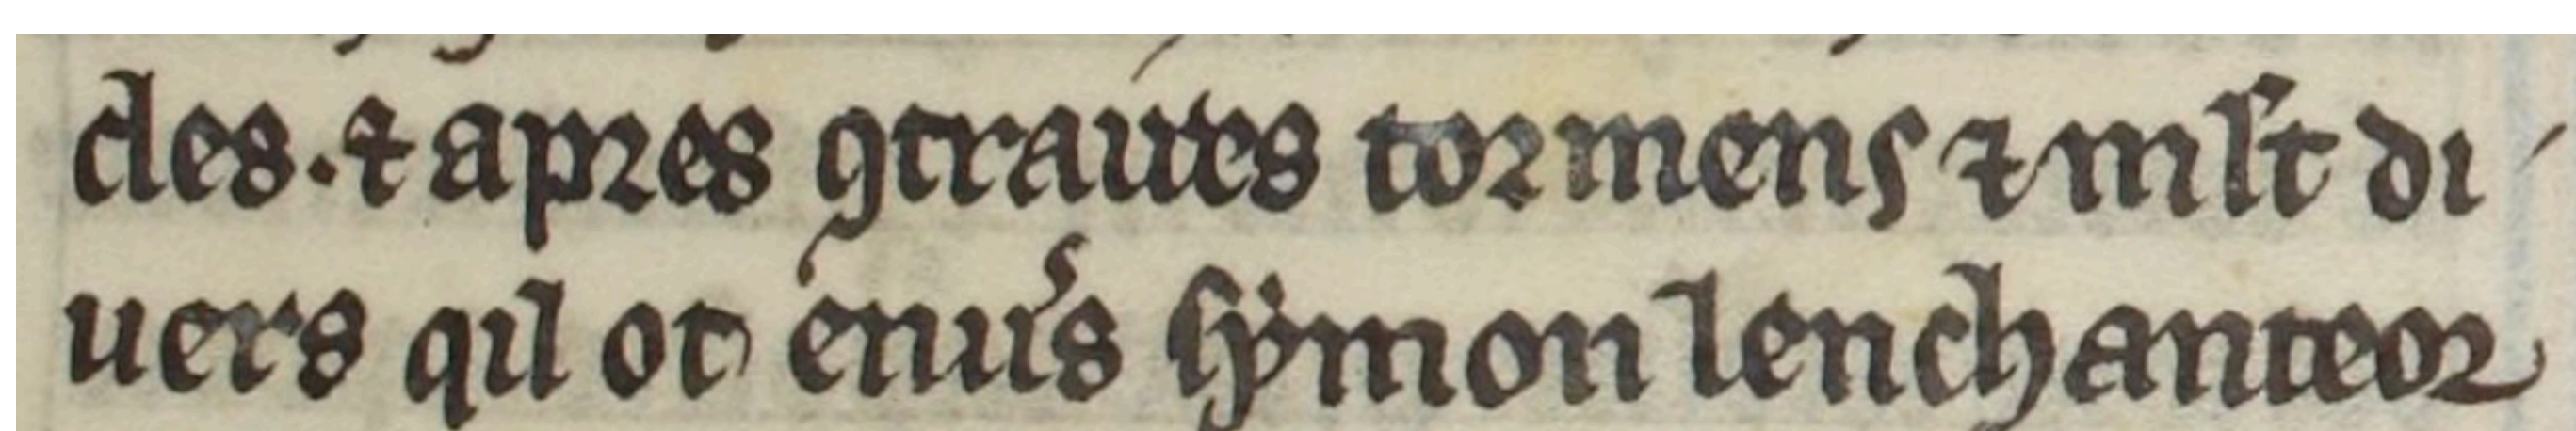 cles. ⁊ apres ꝯtraires tormens ⁊ mlt di
uers qil ot enu's symon lenchanteor